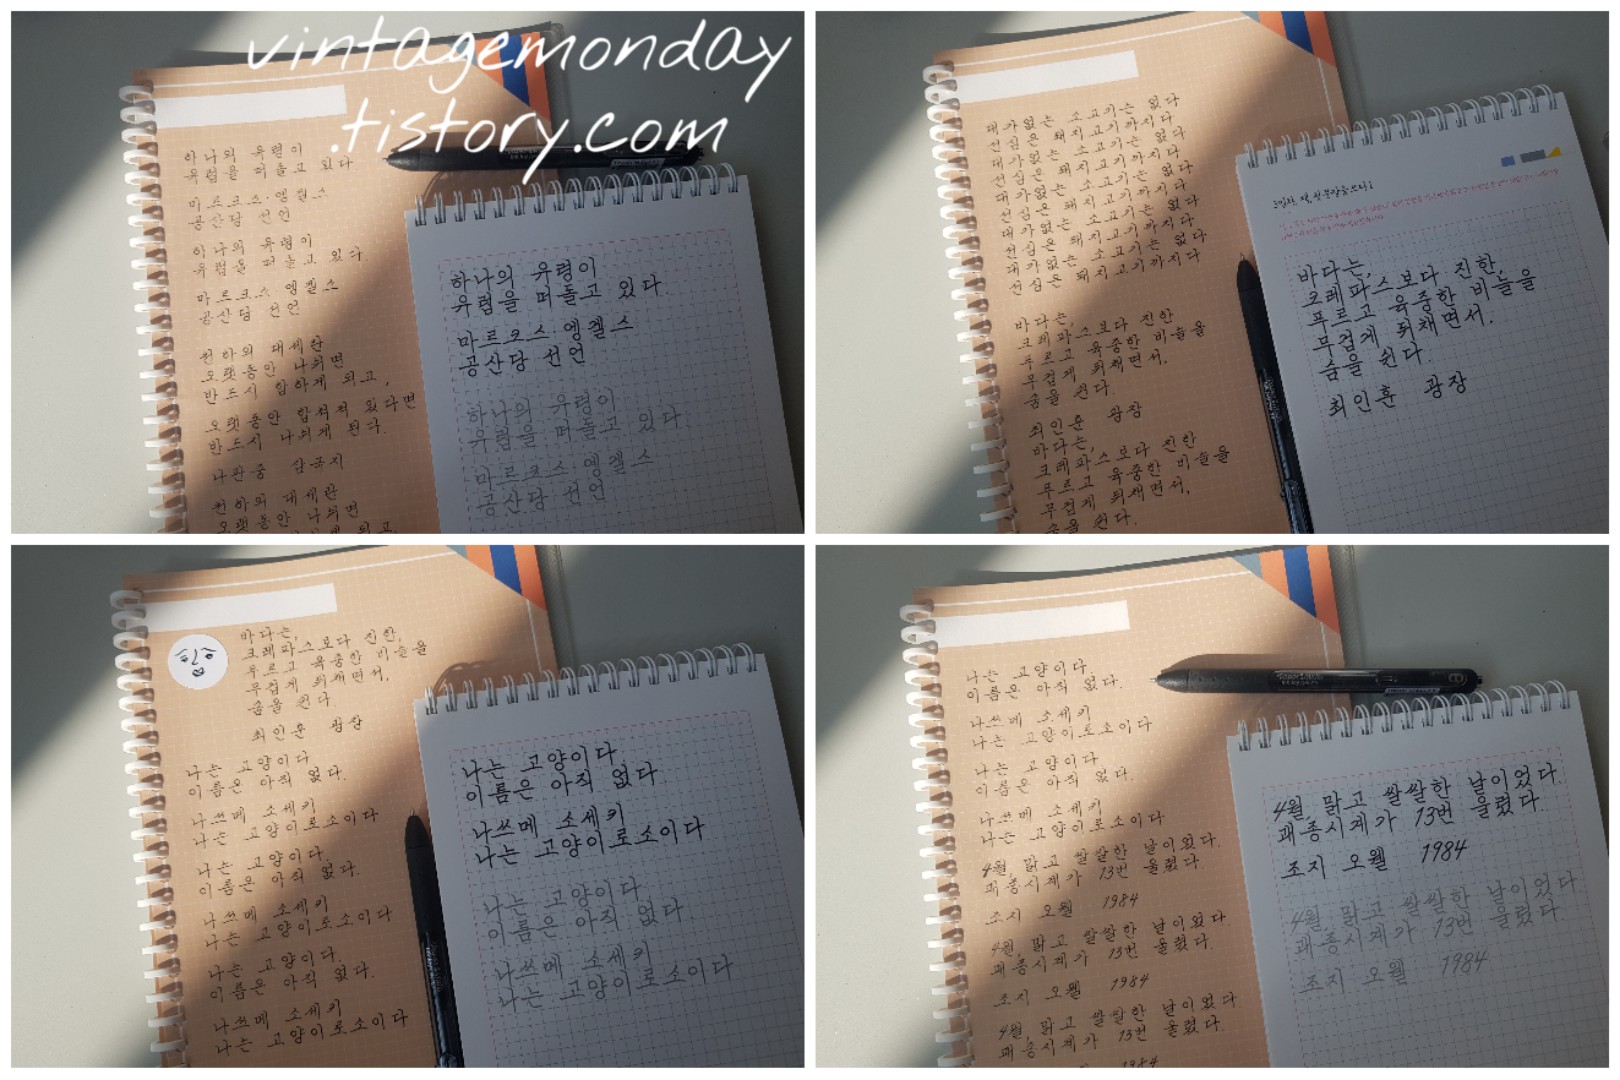 vintagemonday
.tistory.com
하나의 유령이
유럽을 떠돌고 있다
마르크스·엥겔스
공산당 선언
하나의 유령이
유럽을 떠돌고 있다.
마르크스·엥겔스
공산당 선언
천하의 대세란
오랫동안 나뉘면
반드시 합하게 되고,
오랫동안 합쳐져 있다면
반드시 나뉘게 된다.
나관중 삼국지
천하의 대세란
오랫동안 나뉘면
되고,
하나의 유령이
유럽을 떠돌고 있다.
마르크스·엥겔스
공산당 선언
하나의 유령이
유럽을 떠돌고 있다.
마르크스·엥겔스
공산당 선언
대가없는 소고기는 없다
선심은 돼지고기까지다
대가없는 소고기는 없다
선심은 돼지고기까지다
대가없는 소고기는 없다
선심은 돼지고기까지다
대가없는 소고기는 없다
선심은 돼지고기까지다
대가없는 소고기는 없다
선심은 돼지고기까지다
바다는,
크레파스보다 진한
푸르고 육중한 비늘을
무겁게 뒤채면서,
숨을 쉰다.
최인훈 광장
바다는,
크레파스보다 진한
푸르고 육중한 비늘을
무겁게 뒤채면서,
숨을 쉰다.
바다는,
크레파스보다 진한,
푸르고 육중한 비늘을
무겁게 뒤채면서.
숨을 쉰다.
최인훈 광장
바다는,
크레파스보다 진한,
푸르고 육중한 비늘을
무겁게 뒤채면서,
숨을 쉰다.
최인훈 광장
나는 고양이다
이름은 아직 없다.
나쓰메 소세키
나는 고양이로소이다
나는 고양이다.
이름은 아직 없다.
나쓰메 소세키
나는 고양이로소이다
나는 고양이다.
이름은 아직 없다.
나쓰메 소세키
나는 고양이로소이다
나는 고양이다
이름은 아직 없다.
나쓰메 소세키
나는 고양이로소이다
나는 고양이다
이름은 아직 없다.
나쓰메 소세키
나는 고양이로소이다
나는 고양이다
이름은 아직 없다.
나쓰메 소세키
나는 고양이로소이다
나는 고양이다
이름은 아직 없다.
나쓰메 소세키
나는 고양이로소이다
4월, 맑고 쌀쌀한 날이었다.
괘종시계가 13번 울렸다
조지 오웰 1984
4월, 맑고 쌀쌀한 날이었다.
괘종시계가 13번 울렸다.
조지 오웰 1984
4월, 맑고 쌀쌀한 날이었다
괘종시계가 13번 울렸다.
1984
4월, 맑고 쌀쌀한 날이었다.
괘종시계가 13번 울렸다.
조지 오웰 1984
4월, 맑고 쌀쌀한 날이었다.
괘종시계가 13번 울렸다.
조지 오웰 1984